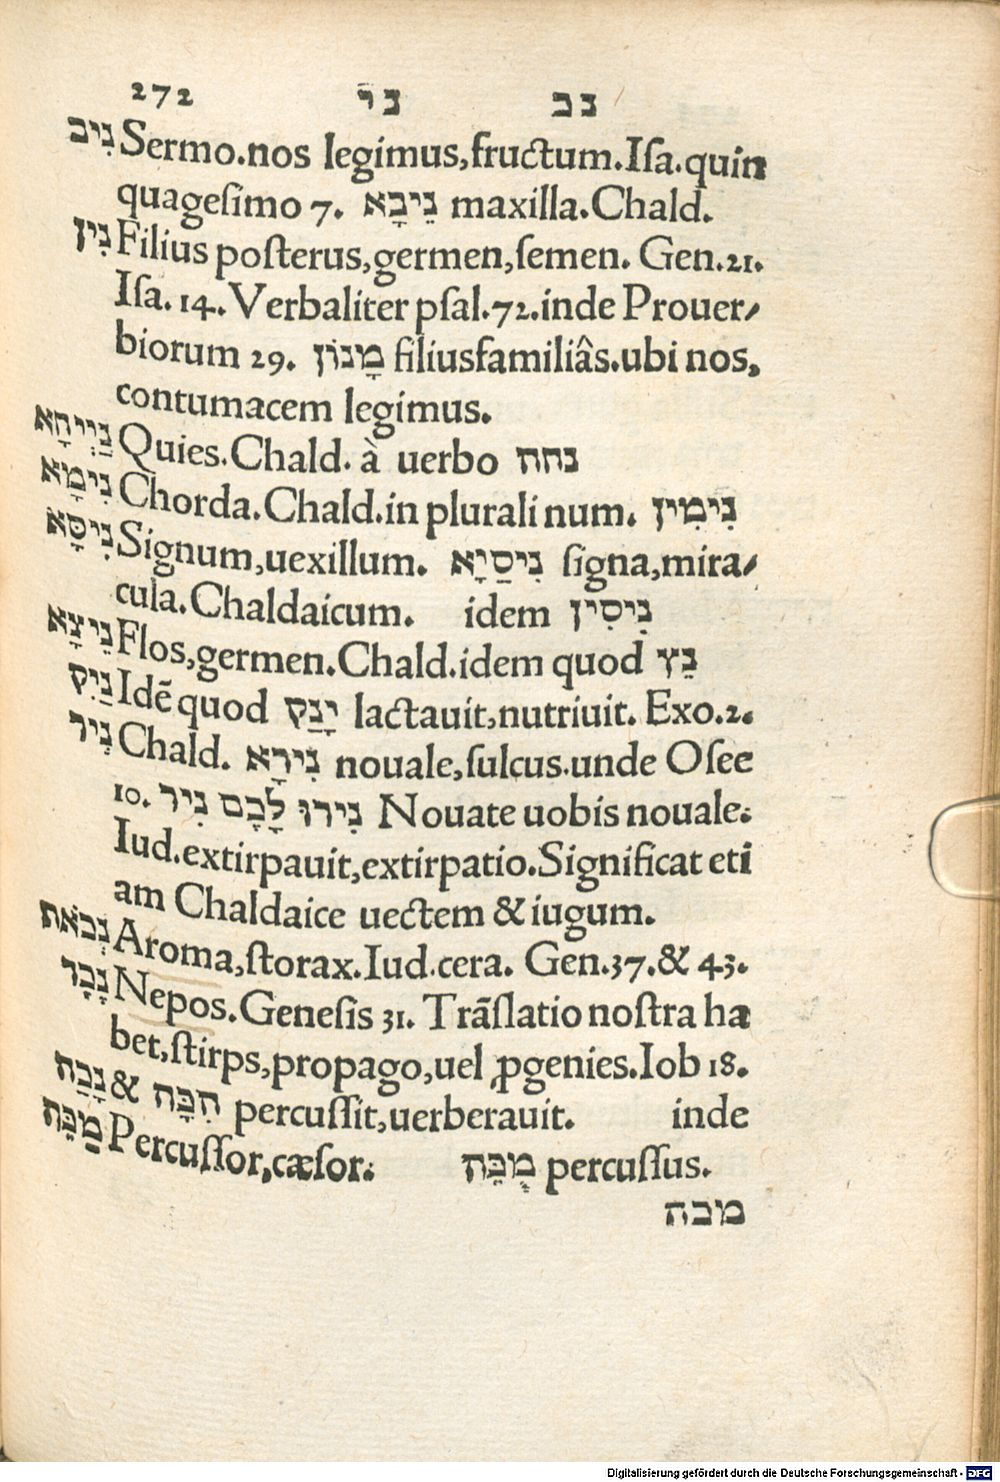 272 ני נכ
נִיב Sermo.nos legimus,fructum.Iſa.quin
quageſimo 7. נֵיבָא maxilla.Chald.
נִין Filius poſterus,germen,ſemen. Gen.21.
Iſa. 14. Verbaliter pſal.72.inde Prouer⸗
biorum 29. מָנוֹן filiusfamiliâs.ubi nos,
contumacem legimus.
נַיְיחָא Quies.Chald. à uerbo נחח
נִימָא Chorda.Chald.in plurali num. נִימִין
נִיסָּא Signum,uexillum. נִיסַיָא ſigna,mira⸗
cula.Chaldaicum. idem נִיסִין
נֵיצָא Flos,germen.Chald.idem quod נֵץ
נַיִק Idē quod יָנַק lactauit,nutriuit. Exo.2.
נִיר Chald. נִירָא nouale,ſulcus.unde Oſee
10. נִירוּ לָכֶם נִיר Nouate uobis nouale:
Iud.extirpauit,extirpatio.Significat eti
am Chaldaice uectem & iugum.
נְכֹאת Aroma,ſtorax.Iud.cera. Gen.37.& 43.
נָכָד Nepos.Geneſis 31. Trāſlatio noſtra ha
bet,ſtirps,propago,uel ꝓgenies.Iob 18.
נָכָה & הִכָּה percuſſit,uerberauit. inde
מַכֶּה Percuſſor,cæſor: מֻכֶּה percuſſus.
מכה
Digitalisierung gefördert durch die Deutsche Forschungsgemeinschaft - DFG